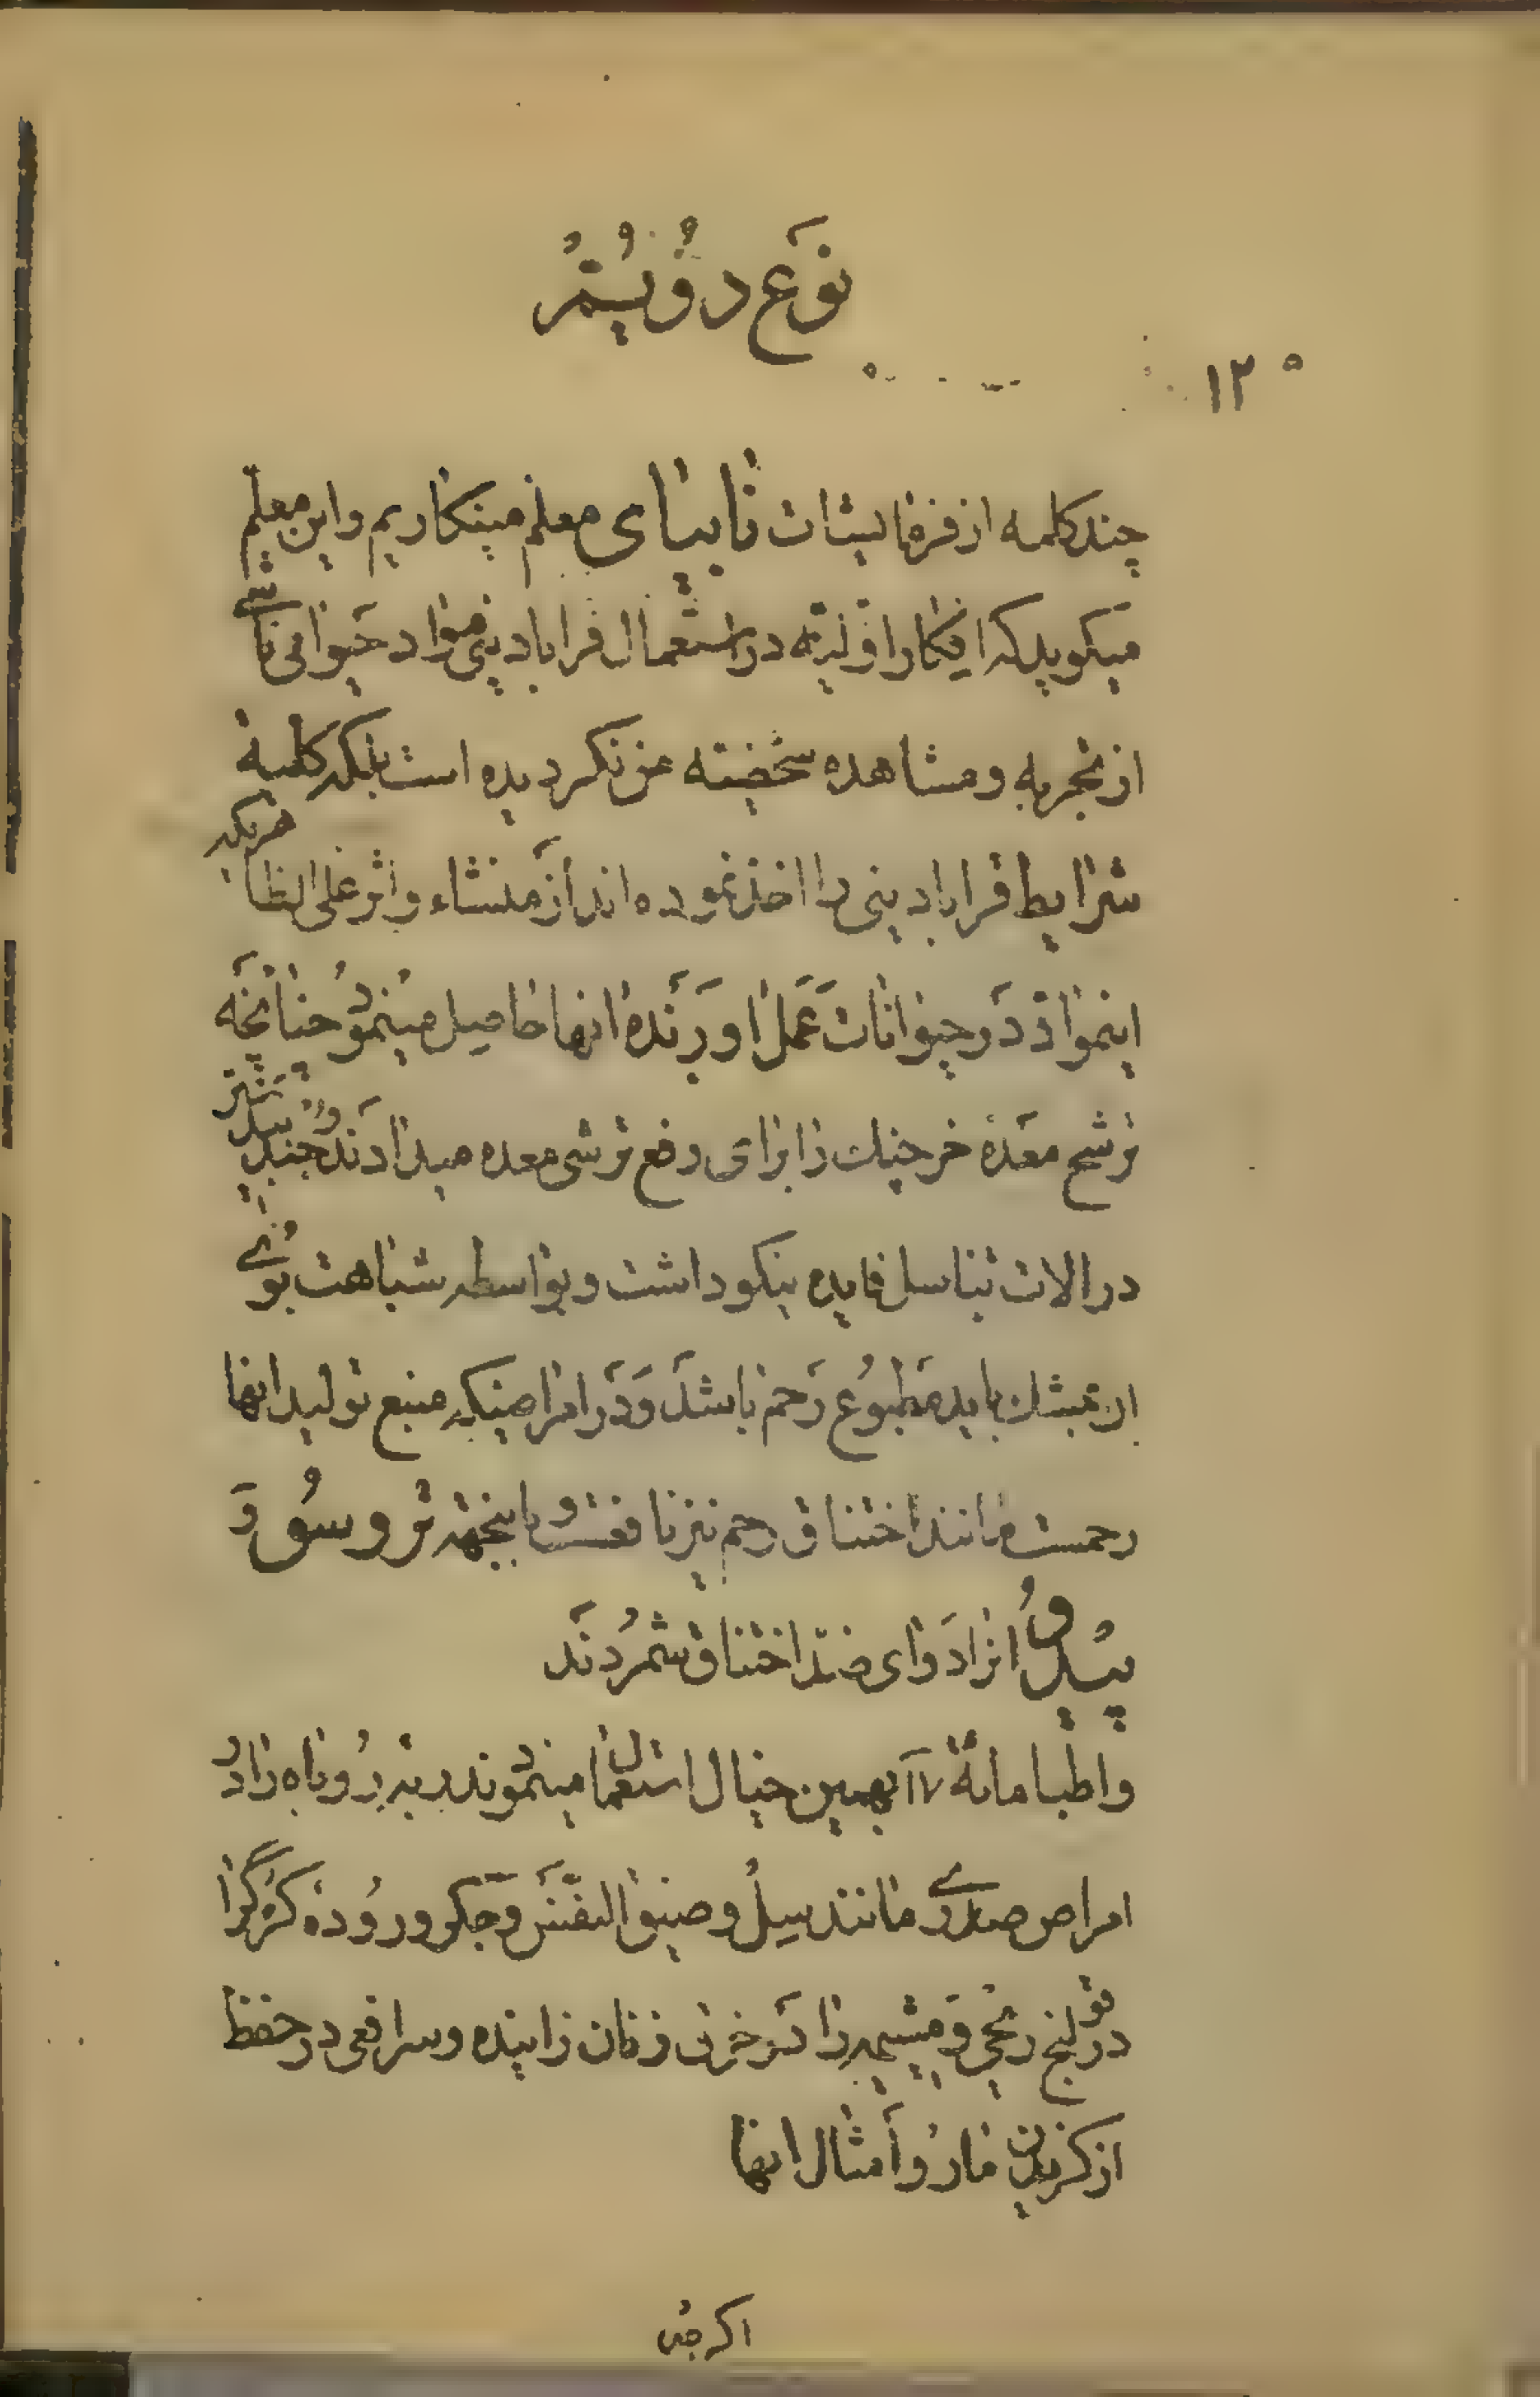 نوع دویم
۱۲۰
چند کلمه از فرمایشات نابیای معلم مینگاریم و این معلم
میگوید که افکار اولیه در استعمال قرابادینی مواد حیوانی ناشی
از تجربه و مشاهده شخصیه نگردیده است بلکه کلیهٔ
شرایط قرابادینی را اخذ نموده اند از منشاء و اثر علی الظاهریکه
اینمواد در حیوانات عمل آورنده انها حاصل مینمود چنانچه
ترشح معدهٔ خرچنك را برای دفع ترشی معده میدادند و جندبیدستر
در الات تناسل فایده نیکو داشت و بواسطه شباهت بوی
ان بمشك باید مطبوع رحم باشد و در امراضیکه منبع تولید انها
رحمست مانند اختناق رحم نیز نافعست و باینجهة تروسو و
پیدو انرا دوای ضد اختناق شمردند
و اطبا مائهٔ ۱۷ بهمین خیال استعمال مینمودند ریه روباه را در
امراض صدری مانند سل و ضیق النفس و جگر و روده گرگ را
در قولنج ریحی و مشیمه را در خونی زنان زاینده و سر افعی در حفظ
از گزیدن مار و امثال انها
اگرچه